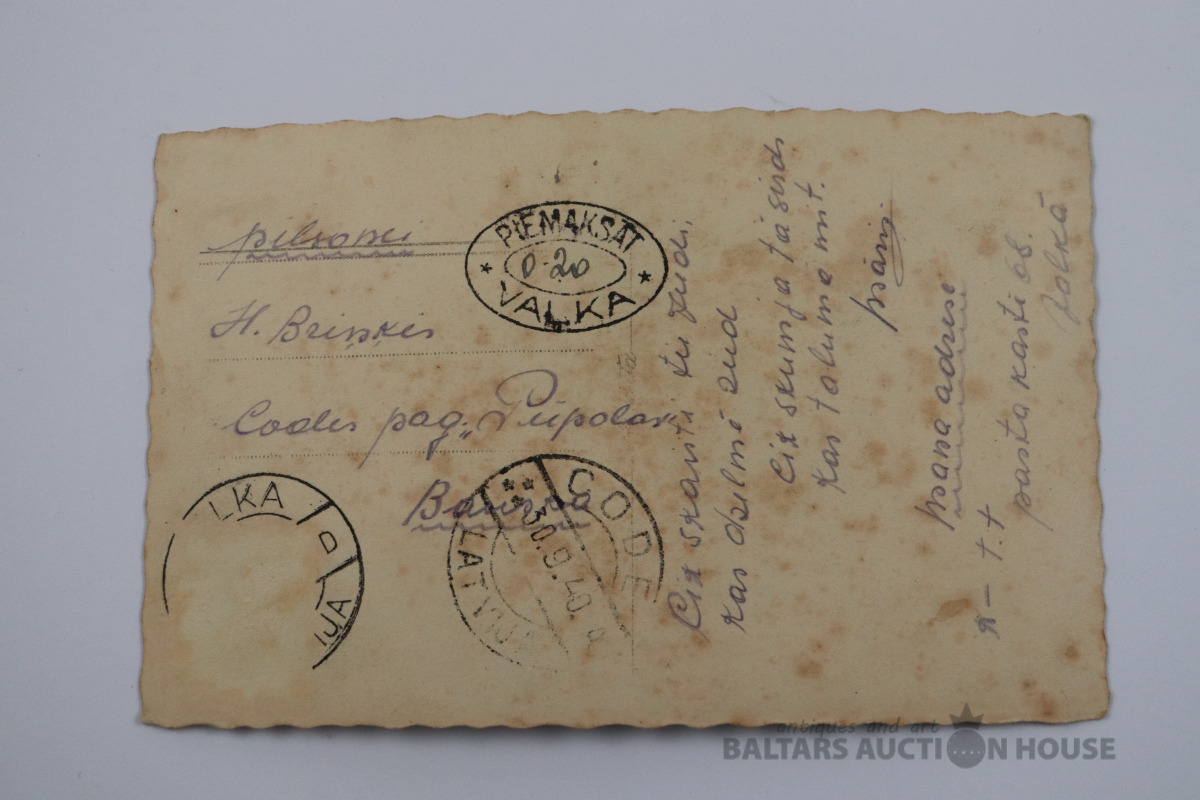 pilsonei
PIEMAKSAT
0-20
VALKA
H. Briņķis
Codes pag. „Pūpolos"
Bauska
LKA
D
IJA
CODE
30.9.40.
LAT
a
Cik skaisti tie ziedi,
kas dzelmē zied
Cik skumja tā sirds
kas tālumā mīt.
mana adrese
k— t. t
pasta kastī 68.
Valkā
antiques and art
BALTARS AUCTION HOUSE